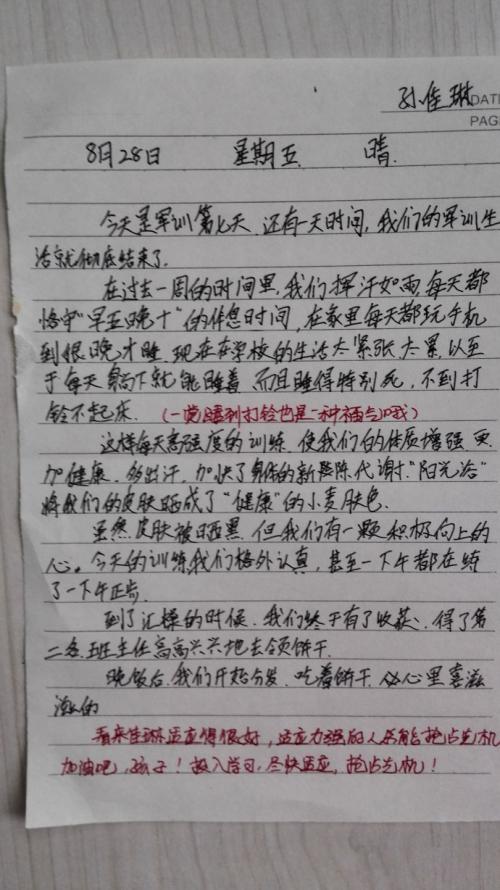 孙佳琳 DATE
PAG
8月28日 星期五 晴
今天是军训第七天,还有一天时间,我们的军训生
活就彻底结束了.
在过去一周的时间里,我们挥汗如雨,每天都
恪守“早五晚十”的作息时间,在家里每天都玩手机
到很晚才睡,现在在学校的生活太紧张,太累,以至
于每天躺下就能睡着,而且睡得特别死,不到打
铃不起床.(一觉睡到打铃也是一种福气哦)
这样每天高强度的训练,使我们的体质增强,更
加健康,多出汗,加快了身体的新陈代谢.“阳光浴”
将我们的皮肤晒成了“健康”的小麦肤色.
虽然皮肤被晒黑,但我们有一颗积极向上的
心。今天的训练我们格外认真,甚至一下午都在练
了一下午正步.
到了汇操的时候,我们终于有了收获,得了第
二名,班主任高高兴兴地去领饼干.
晚饭后,我们开始分发,吃着饼干,心里喜滋
滋的
看来佳琳适应得很好,适应力强的人才能抢占先机
加油吧,孩子!投入学习,尽快适应,抢占先机!